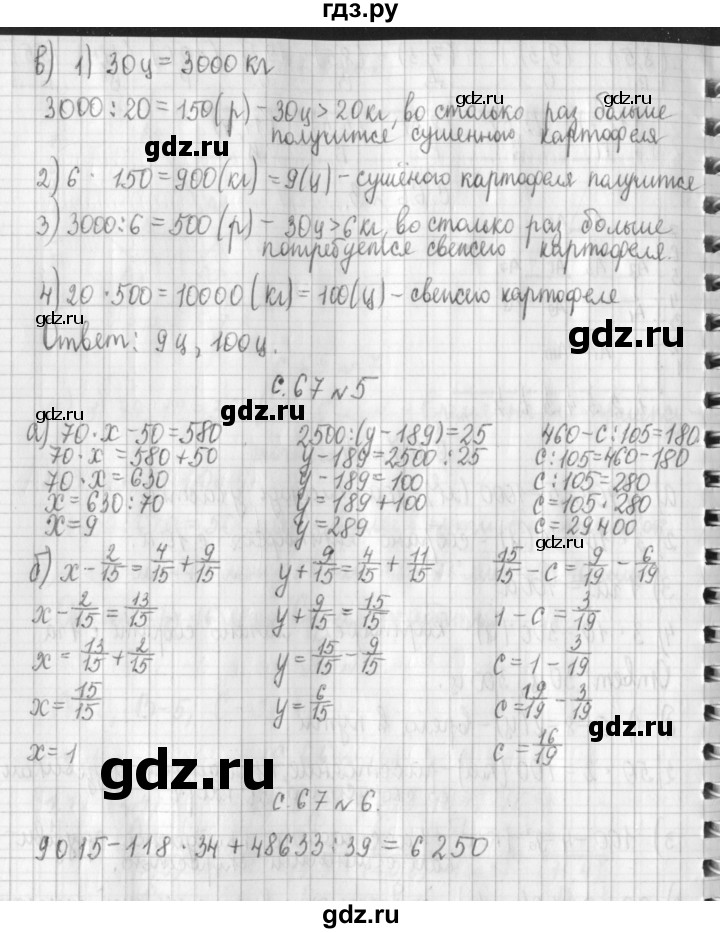 гдз.ру
в) 1) 30 ц = 3000 кг
3000 : 20 = 150 (р) – 30 ц > 20 кг, во столько раз больше
получится сушенного картофеля
2) 6 · 150 = 900 (кг) = 9 (ц) – сушёного картофеля получится
3) 3000 : 6 = 500 (р) – 30 ц > 6 кг, во столько раз больше
потребуется свежего картофеля.
4) 20 · 500 = 10000 (кг) = 100 (ц) – свежего картофеле
Ответ: 9 ц, 100 ц.
с. 67 № 5
а) 70 · x – 50 = 580   2500 : (y – 189) = 25   460 – c : 105 = 180
70 · x = 580 + 50   y – 189 = 2500 : 25   c : 105 = 460 – 180
70 · x = 630   y – 189 = 100   c : 105 = 280
x = 630 : 70   y = 189 + 100   c = 105 · 280
x = 9   y = 289   c = 29400
б) x – 2/15 = 4/15 + 9/15   y + 9/15 = 4/15 + 11/15   15/15 – c = 9/19 – 6/19
x – 2/15 = 13/15   y + 9/15 = 15/15   1 – c = 3/19
x = 13/15 + 2/15   y = 15/15 – 9/15   c = 1 – 3/19
x = 15/15   y = 6/15   c = 19/19 – 3/19
x = 1   c = 16/19
с. 67 № 6.
9015 – 118 · 34 + 48633 : 39 = 6250
gdz.ru
gdz.ru
gdz.ru
gdz.ru
gdz.ru
gdz.ru
gdz.ru
gdz.ru
gdz.ru
gdz.ru
gdz.ru
gdz.ru
gdz.ru